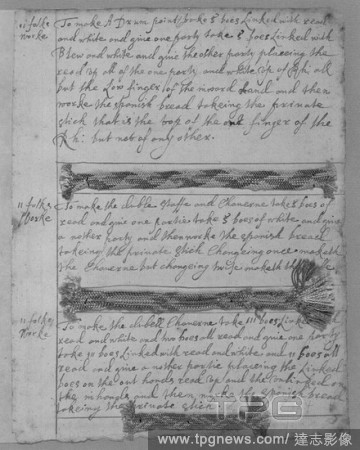 ii falke To make A Drum point take 5 boes Linked with read
Worke and white and give one party take 5 boes Linked with
Blew and white and give the other party placeing the
read up all of the one party and white up of the all
but the Low finger of the and then
worke the spanish bread takeing the privinate
stick that is the top of the one finger of the
R hi but not of ony other.
ii falke To make the duble staffe and Chanerne take 5 boes of
Worke read and give one partie take 5 boes of white and give
a nother party and then worke the spanish bread
takeing the privinate stick Changeing once maketh
the Chanerne but changeing twise maketh the
ii falke To make the dubell Chanerne take iii boes Linked
Worke read and white and two boes all read and give one party
take iii boes Linked with read and white and ii boes all
read and give a nother partie placeing the Linked
boes on the out hands read up and the
the and then make the spanish bread
takeing the privinate stick
TPG
www.tpgnews.com/達志影像